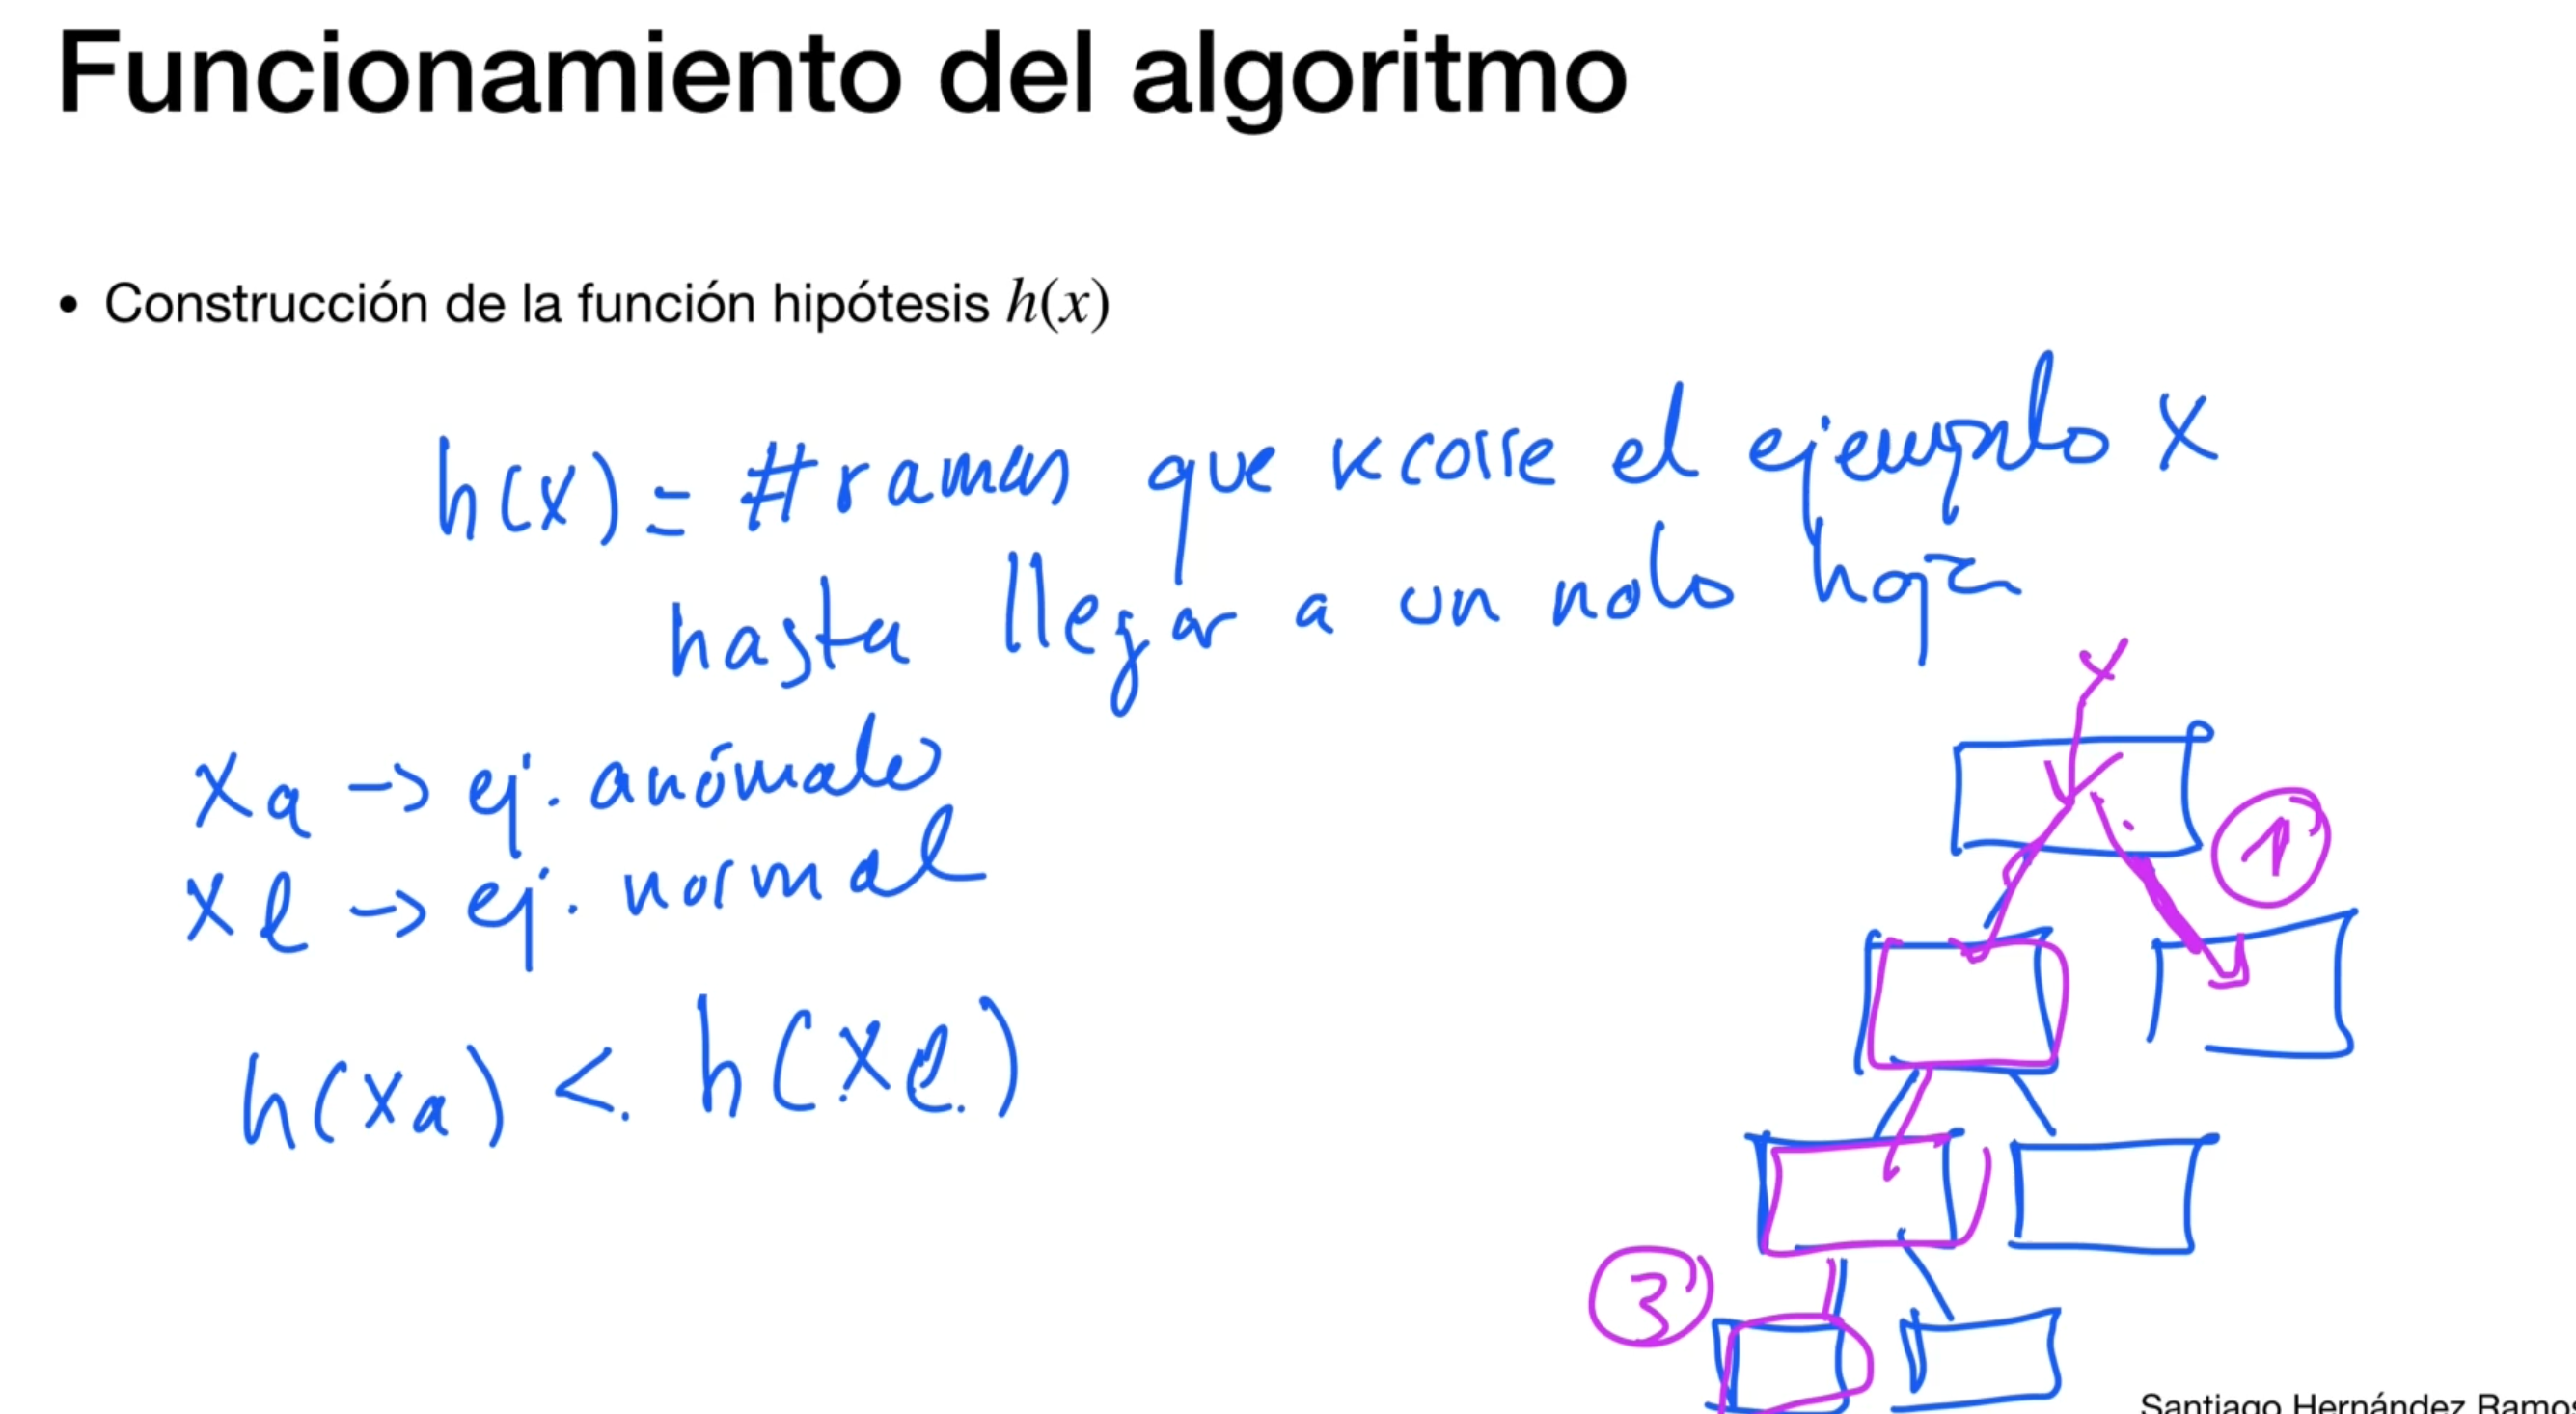 Funcionamiento del algoritmo
• Construcción de la función hipótesis h(x)
h(x) = # ramas que recorre el ejemplo x
hasta llegar a un nodo hoja
xa -> ej. anómalo
xe -> ej. normal
h(xa) < h(xe)
x
1
3
Santiago Hernández Ramo